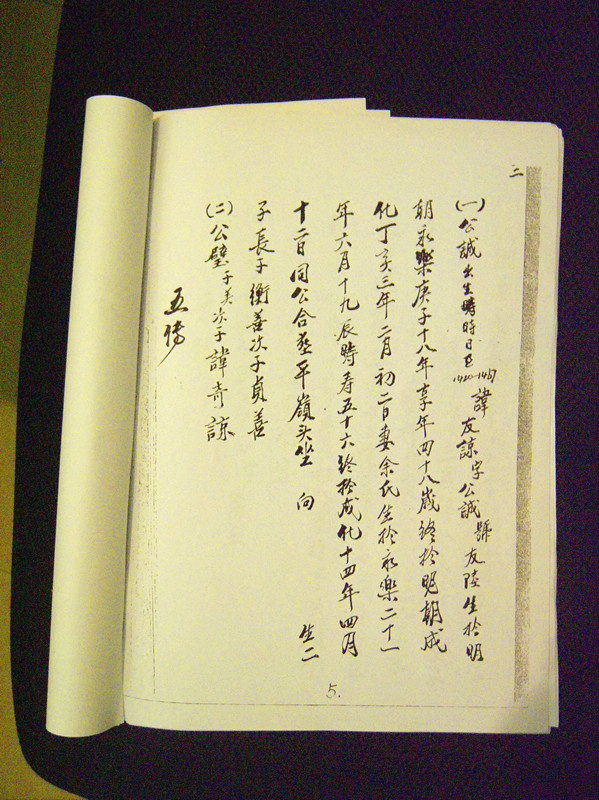 三
(一)公誠出生時時日至1420-1467諱友諒字公誠號友陵生於明
朝永樂庚子十八年享年四十八歲終於明朝成
化丁亥三年二月初二日妻余氏生於永樂二十一
年六月十九辰時寿五十六終於成化十四年四月
十二日同公合葬平嶺头坐 向 生二
子長子衡善次子貞善
(二)公璧子美次子諱奇諒
五傳
5.